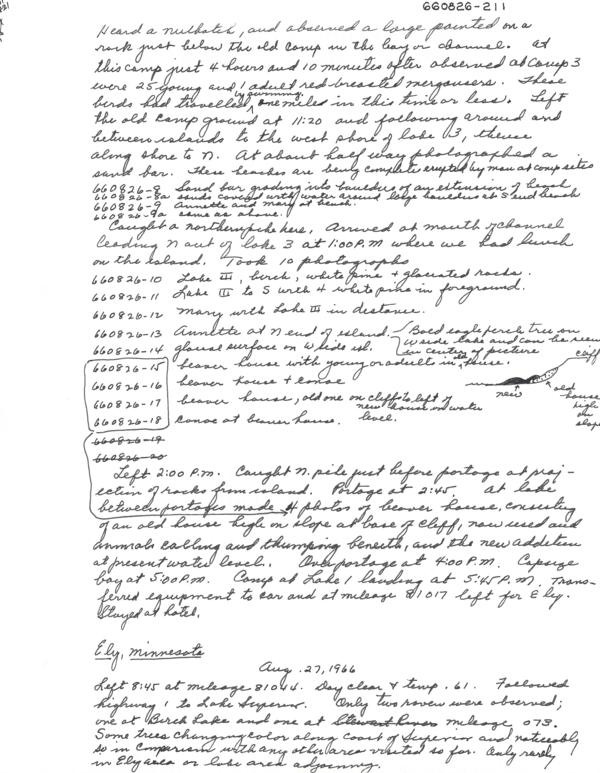 660826-211
Heard a nuthatch, and observed a large painted on a
rock just below the old camp in the bay or channel. At
this camp just 4 hours and 10 minutes after observed at Camp 3
were 25 young and 1 adult red breasted mergansers. These
birds had travelled, by swimming, one mile in this time or less. Left
the old camp ground at 11:20 and following around and
between islands to the west shore of lake 3, thence
along shore to N. At about half way photographed a
sand bar. These beaches are being completely erupted by man at camp sites
660826-8 Sand bar grading into boulders of an extension of beach
660826-8a sands covered with water around large boulders at S end beach
660826-9 Annette and Mary at beach.
660826-9a same as above.
Caught a northern pike here. Arrived at mouth of channel
leading N out of lake 3 at 1:00 P.M where we had lunch
on the island. Took 10 photographs
660826-10 Lake III, birch, white pine + glaciated rocks.
660826-11 Lake III to S with 4 white pine in foreground.
660826-12 Mary with Lake III in distance.
660826-13 Annette at N end of island. Bald eagle perch tree on
W side lake and can be seen
in center of picture
660826-14 glacial surface on W side isl.
660826-15 beaver house with young or adults in old house.
660826-16 beaver house + canoe
660826-17 beaver house, old one on cliff to left of
new house on water
level.
660826-18 canoe at beaver house.
cliff
new
old
house
high
on
slope
660826-19
660826-20
Left 2:00 P.M. Caught N. pike just before portage at proj-
ection of rocks from island. Portage at 2:45. At lake
between portages made 4 photos of beaver house, consisting
of an old house high on slope at base of cliff, now used and
animals calling and thumping beneath, and the new addition
at present water level. Over portage at 4:00 P.M. Capsize
bay at 5:00 P.M. Camp at Lake 1 landing at 5:45 P.M. Trans-
ferred equipment to car and at mileage 81017 left for Ely.
Stayed at hotel.
Ely, Minnesota
Aug. 27, 1966
Left 8:45 at mileage 81044. Day clear & temp. 61. Followed
highway 1 to Lake Superior. Only two raven were observed;
one at Birch Lake and one at Stewart River mileage 073.
Some trees changing color along coast of Superior and noticeably
so in comparison with any other area visited so far. Only rarely
in Ely area or lake area adjoining.